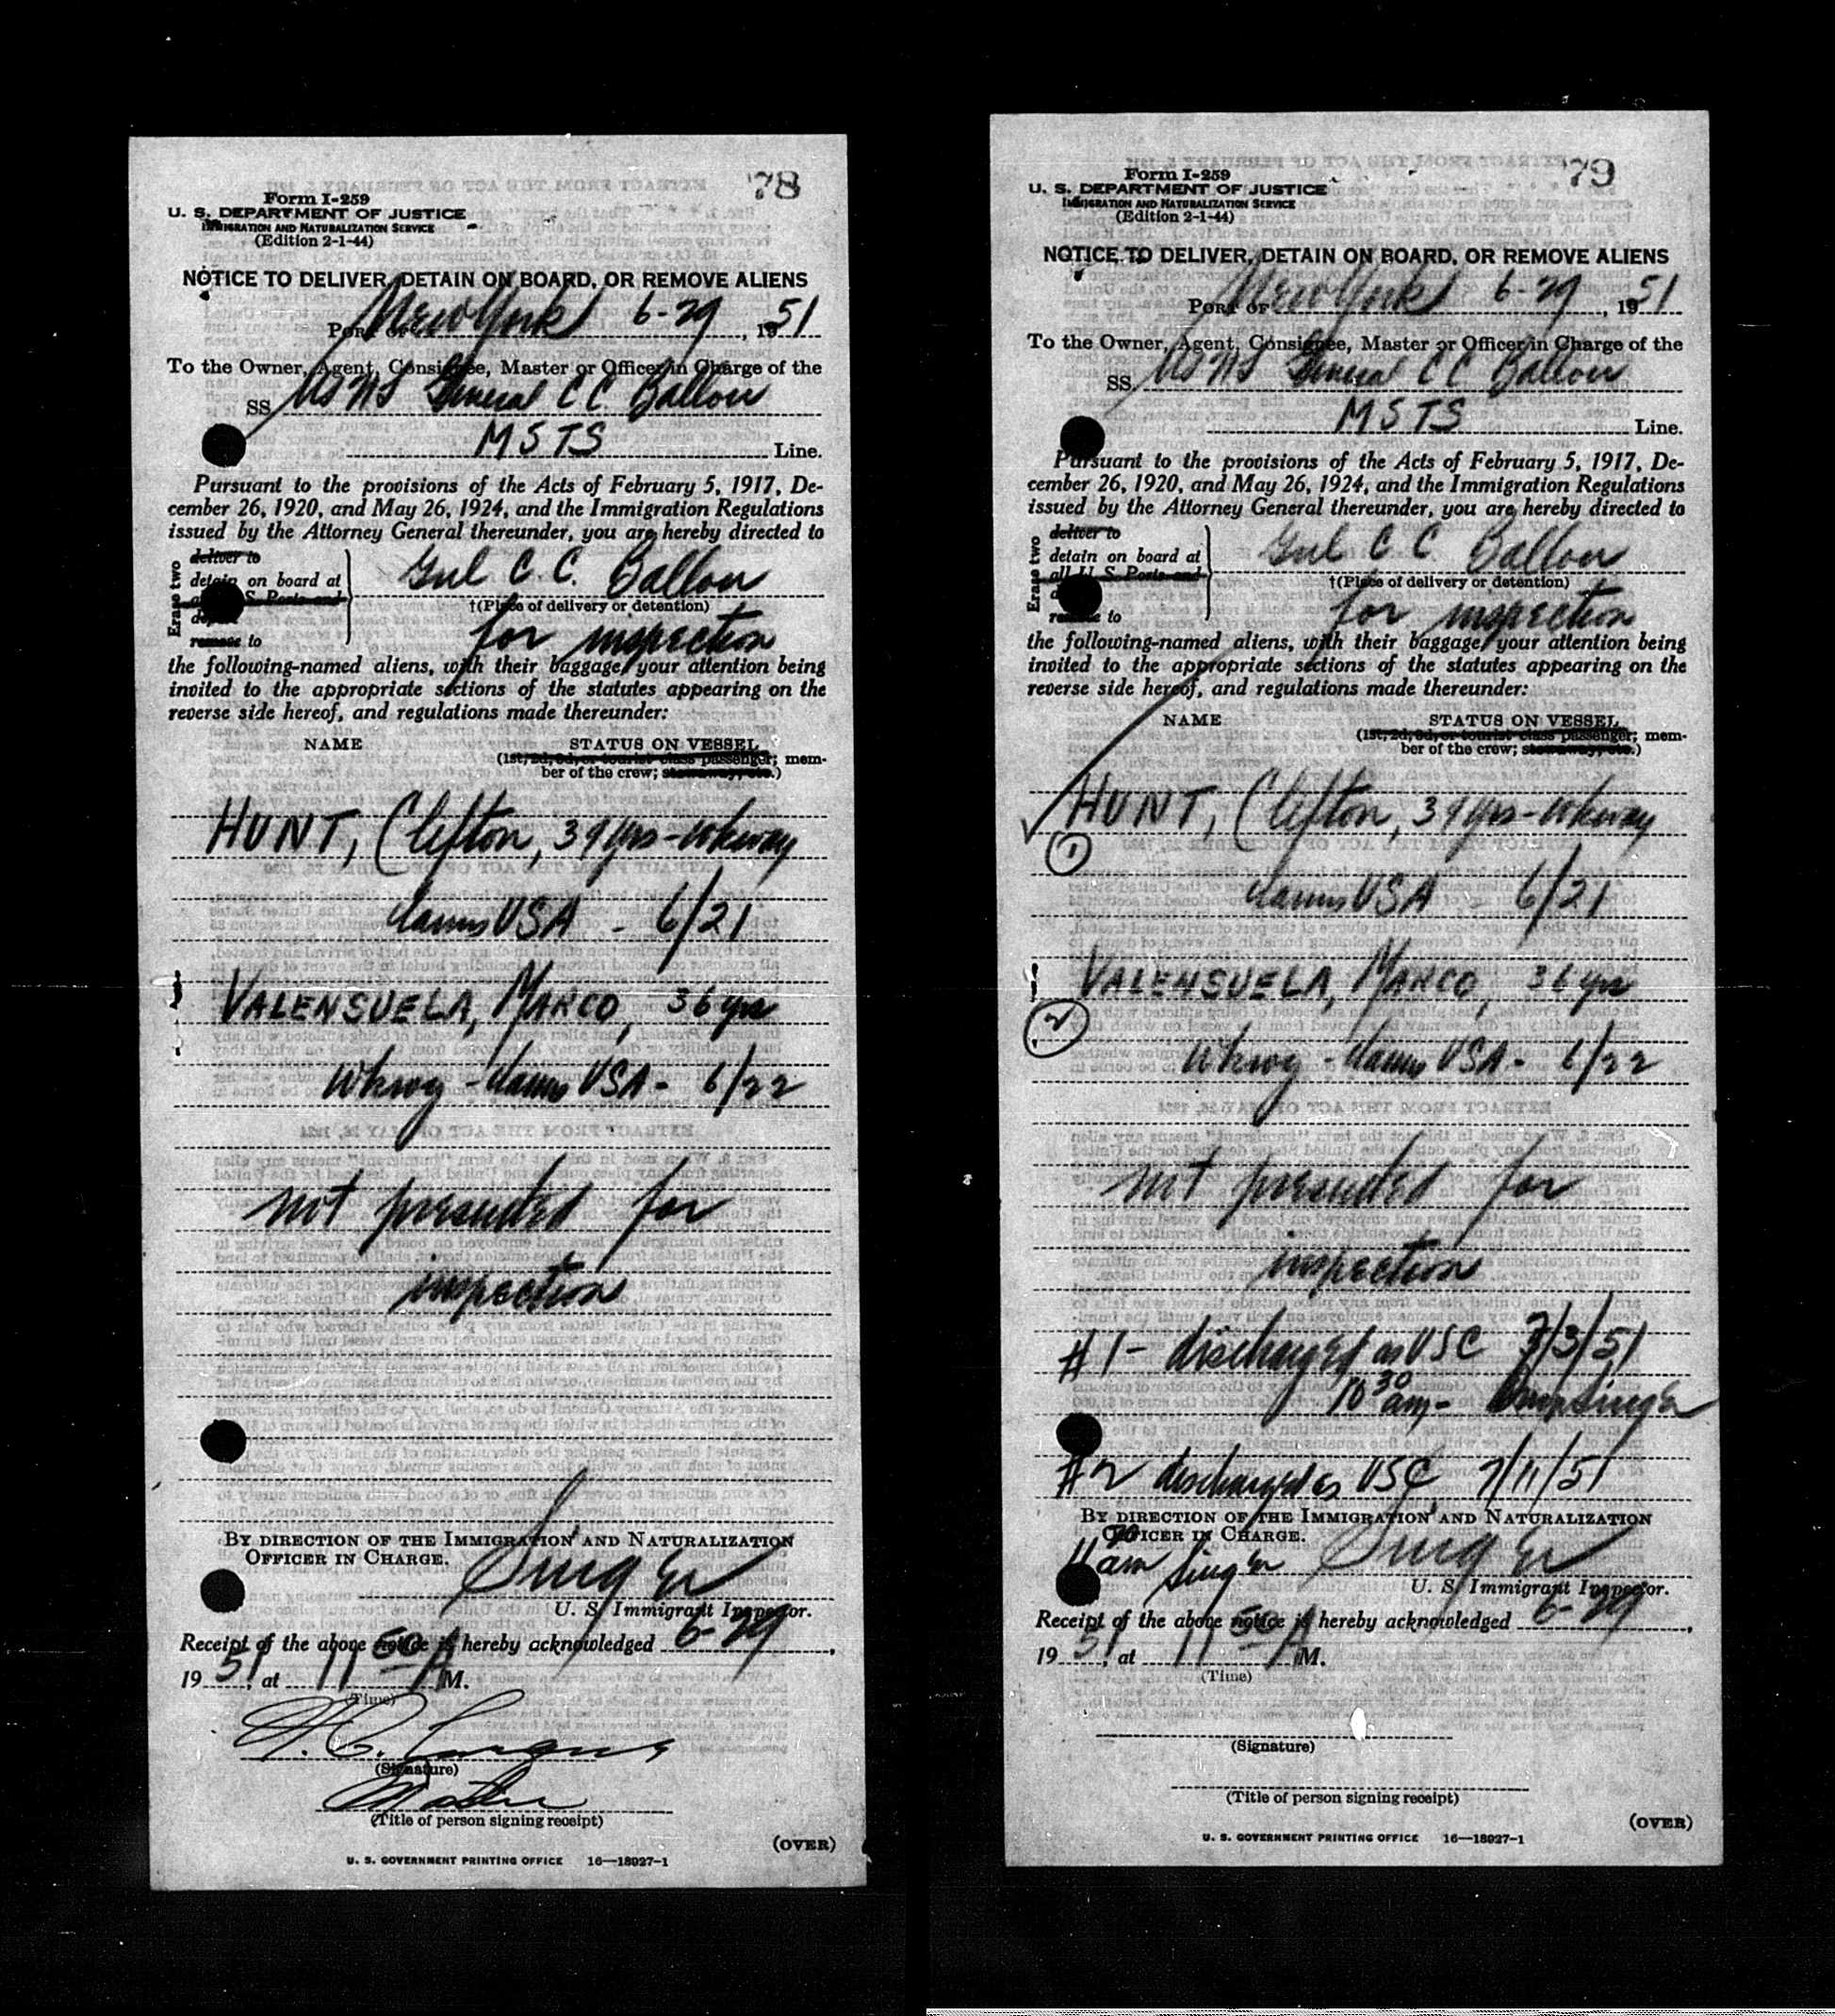 78
Form I-259
U. S. DEPARTMENT OF JUSTICE
IMMIGRATION AND NATURALIZATION SERVICE
(Edition 2-1-44)
NOTICE TO DELIVER, DETAIN ON BOARD, OR REMOVE ALIENS
PORT OF New York 6-29, 1951
To the Owner, Agent, Consignee, Master or Officer in Charge of the
SS USNS General C C Ballou
MSTS Line.
Pursuant to the provisions of the Acts of February 5, 1917, De-
cember 26, 1920, and May 26, 1924, and the Immigration Regulations
issued by the Attorney General thereunder, you are hereby directed to
Erase two
deliver to
detain on board at
S. Ports and
depart
remove to
Gnl C. C. Ballou
†(Place of delivery or detention)
for inspection
the following-named aliens, with their baggage, your attention being
invited to the appropriate sections of the statutes appearing on the
reverse side hereof, and regulations made thereunder:
NAME STATUS ON VESSEL
(1st, 2d, 3d, or tourist class passenger; mem-
ber of the crew; stowaway, etc.)
HUNT, Clifton, 39 yrs - wkway
claims USA - 6/21
VALENSUELA, MARCO, 36 yrs
wkwy - claims USA - 6/22
not presented for
inspection
BY DIRECTION OF THE IMMIGRATION AND NATURALIZATION
OFFICER IN CHARGE.
Singer
U. S. Immigrant Inspector.
Receipt of the above notice is hereby acknowledged 6-29,
1951, at 11 50 A M.
(Time)
(Signature)
Master
(Title of person signing receipt)
(OVER)
U. S. GOVERNMENT PRINTING OFFICE 16—18027-1
79
Form I-259
U. S. DEPARTMENT OF JUSTICE
IMMIGRATION AND NATURALIZATION SERVICE
(Edition 2-1-44)
NOTICE TO DELIVER, DETAIN ON BOARD, OR REMOVE ALIENS
PORT OF New York 6-29, 1951
To the Owner, Agent, Consignee, Master or Officer in Charge of the
SS USNS General C C Ballou
MSTS Line.
Pursuant to the provisions of the Acts of February 5, 1917, De-
cember 26, 1920, and May 26, 1924, and the Immigration Regulations
issued by the Attorney General thereunder, you are hereby directed to
Erase two
deliver to
detain on board at
all U. S. Ports and
remove to
Gnl C C Ballou
†(Place of delivery or detention)
for inspection
the following-named aliens, with their baggage, your attention being
invited to the appropriate sections of the statutes appearing on the
reverse side hereof, and regulations made thereunder:
NAME STATUS ON VESSEL
(1st, 2d, 3d, or tourist class passenger; mem-
ber of the crew; stowaway, etc.)
HUNT, Clifton, 39 yrs - wkway
1
claims USA 6/21
VALENSUELA, MARCO, 36 yrs
2
wkwy - claims USA - 6/22
not presented for
inspection
#1 - discharged as USC 7/3/51
10 30 am - Singer
#2 discharged as USC, 7/11/51
BY DIRECTION OF THE IMMIGRATION AND NATURALIZATION
OFFICER IN CHARGE.
11 20 am Singer Singer
U. S. Immigrant Inspector.
Receipt of the above notice is hereby acknowledged 6-29,
1951, at 11 50 A M.
(Time)
(Signature)
(Title of person signing receipt)
(OVER)
U. S. GOVERNMENT PRINTING OFFICE 16—18027-1